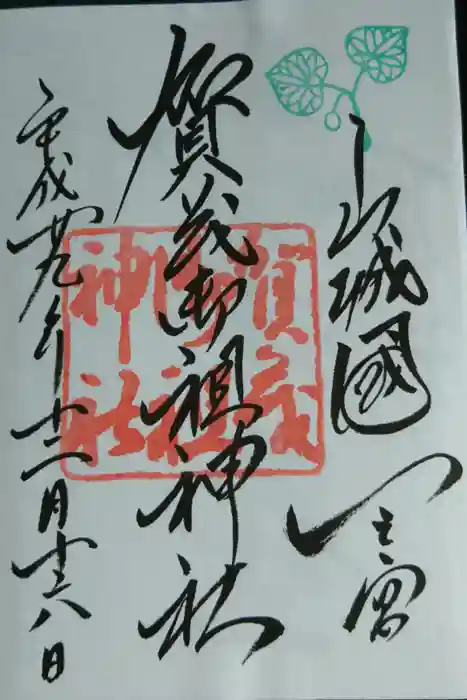 山城國一之宮
賀茂御祖神社
平成廿九年十二月十八日
賀茂御祖神社